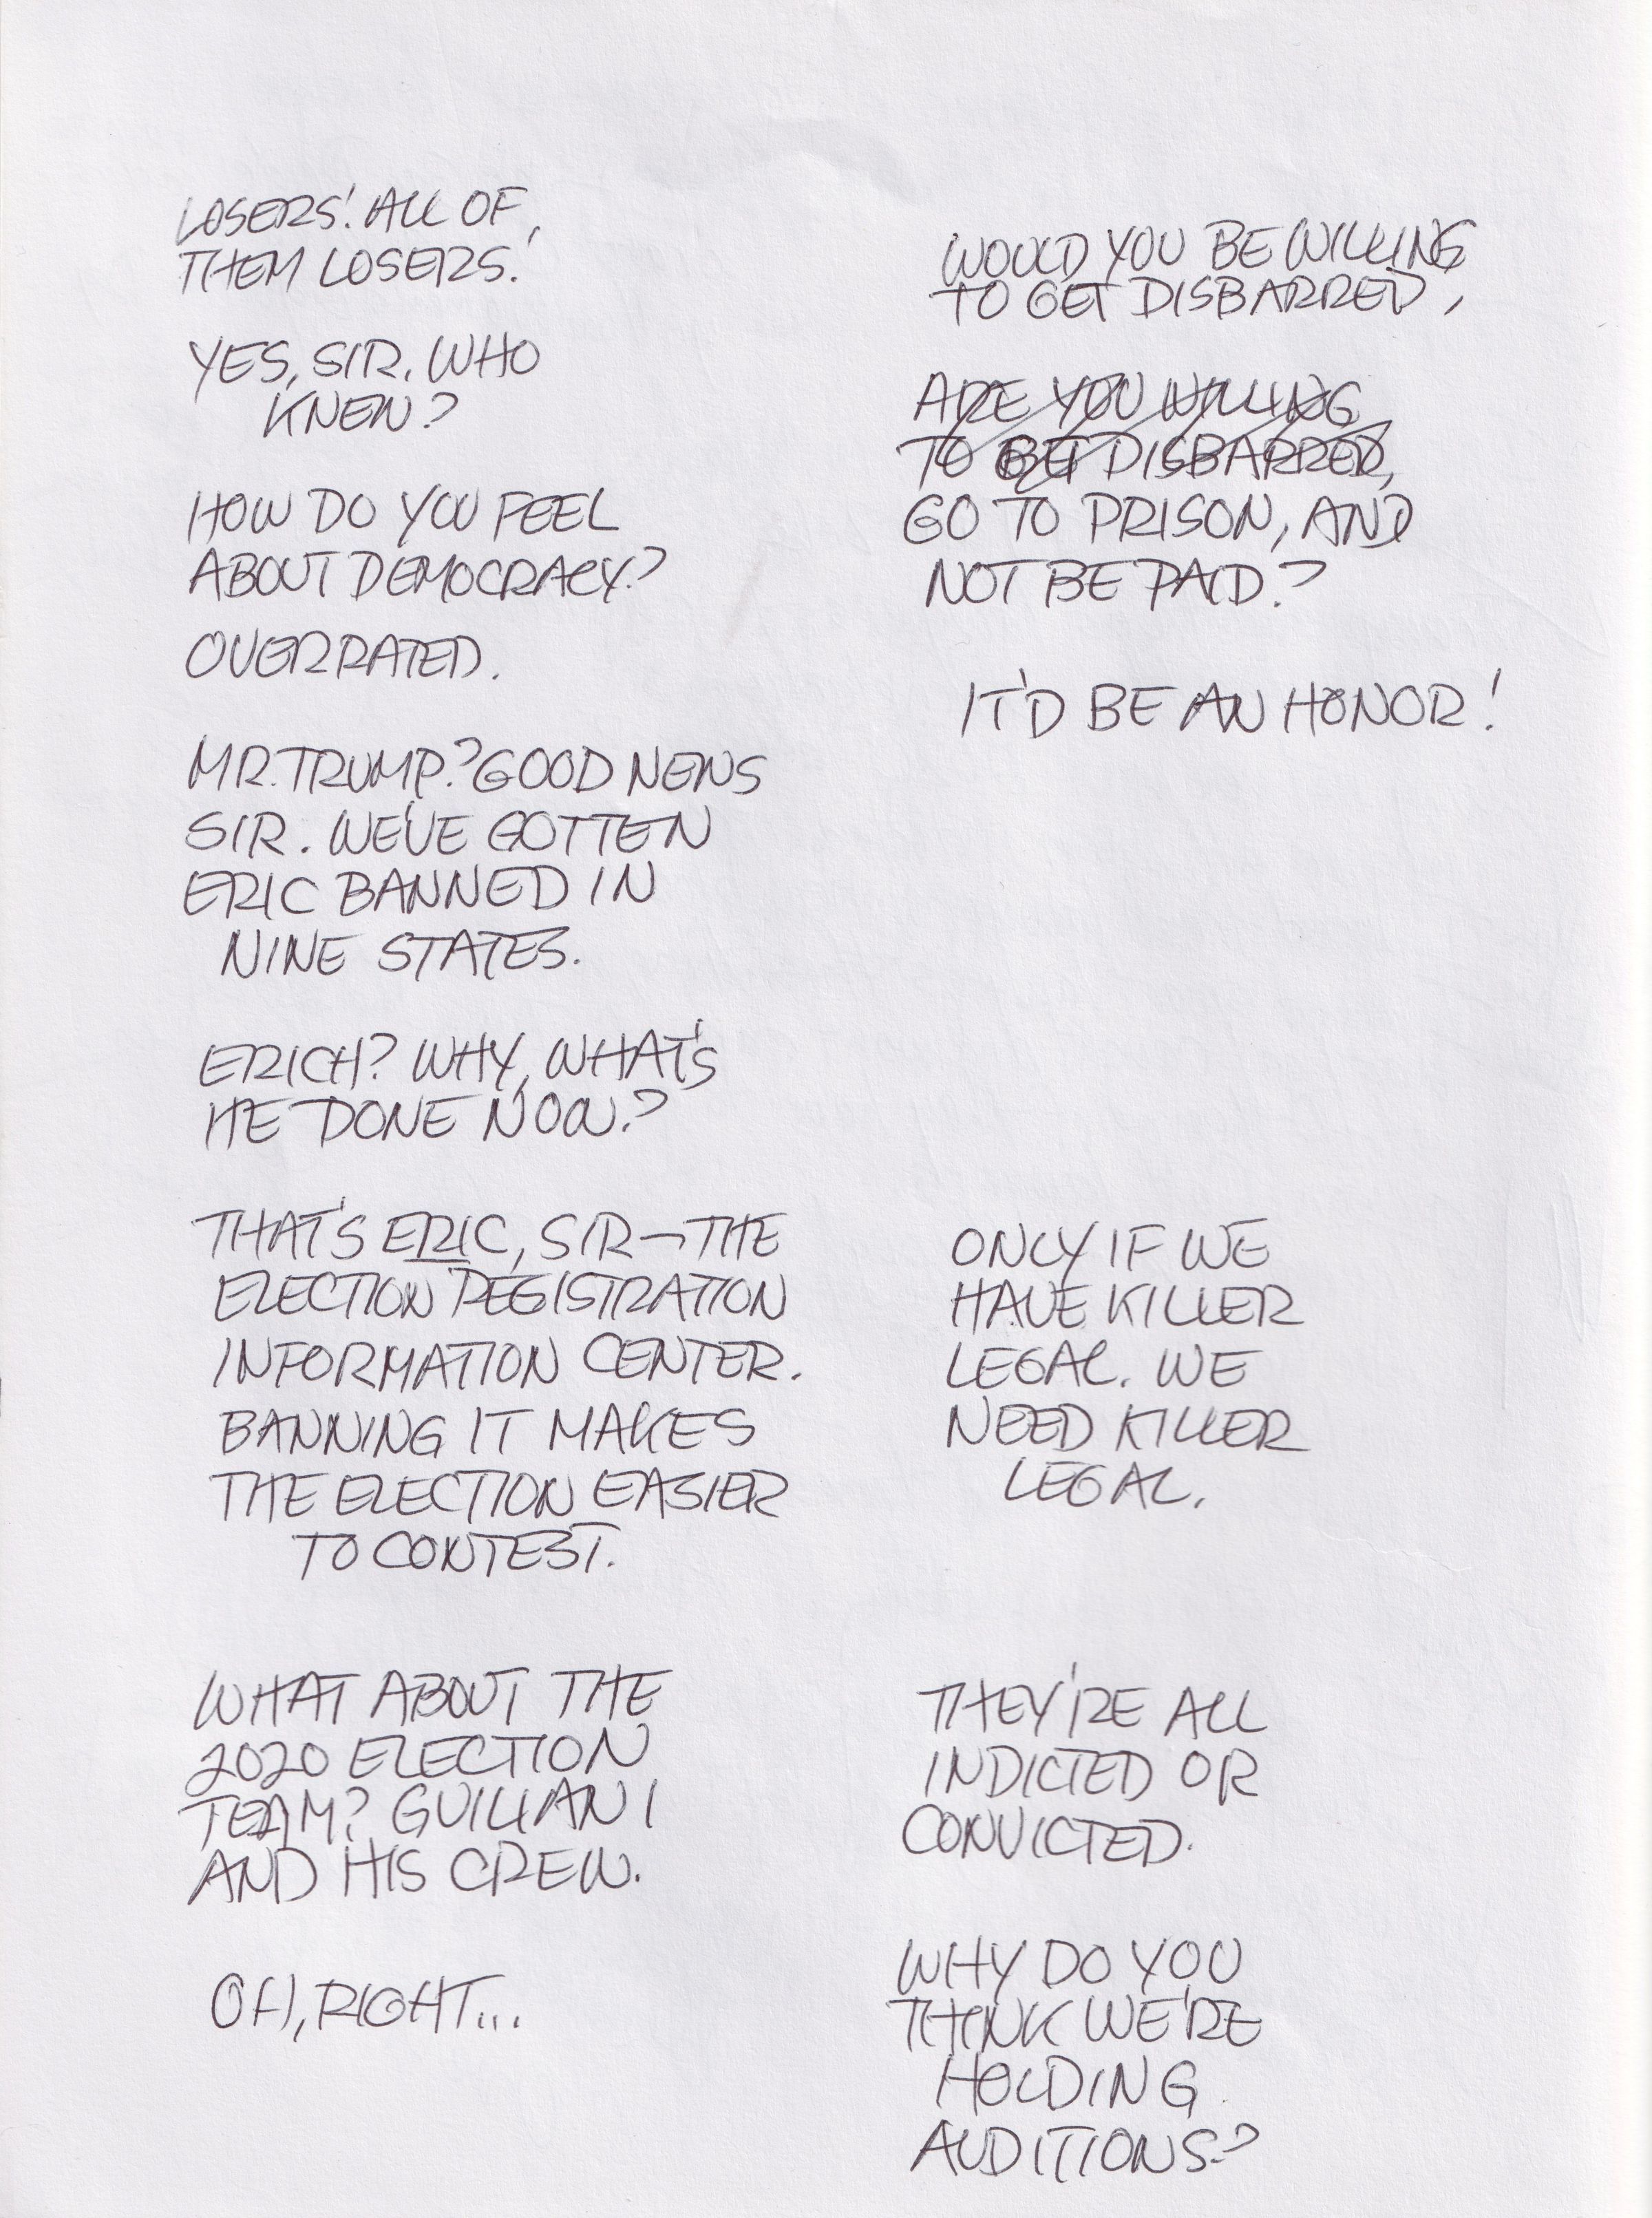 LOSERS! ALL OF
THEM LOSERS!
YES, SIR. WHO
KNEW?
HOW DO YOU FEEL
ABOUT DEMOCRACY?
OVERRATED.
WOULD YOU BE WILLING
TO GET DISBARRED,
ARE YOU WILLING
TO GET DISBARRED,
GO TO PRISON, AND
NOT BE PAID?
IT'D BE AN HONOR!
MR. TRUMP? GOOD NEWS
SIR. WE'VE GOTTEN
ERIC BANNED IN
NINE STATES.
ERICH? WHY, WHAT'S
HE DONE NOW?
THAT'S ERIC, SIR—THE
ELECTION REGISTRATION
INFORMATION CENTER.
BANNING IT MAKES
THE ELECTION EASIER
TO CONTEST.
ONLY IF WE
HAVE KILLER
LEGAL. WE
NEED KILLER
LEGAL.
WHAT ABOUT THE
2020 ELECTION
TEAM? GUILIANI
AND HIS CREW.
THEY'RE ALL
INDICTED OR
CONVICTED.
OH, RIGHT...
WHY DO YOU
THINK WE'RE
HOLDING
AUDITIONS?